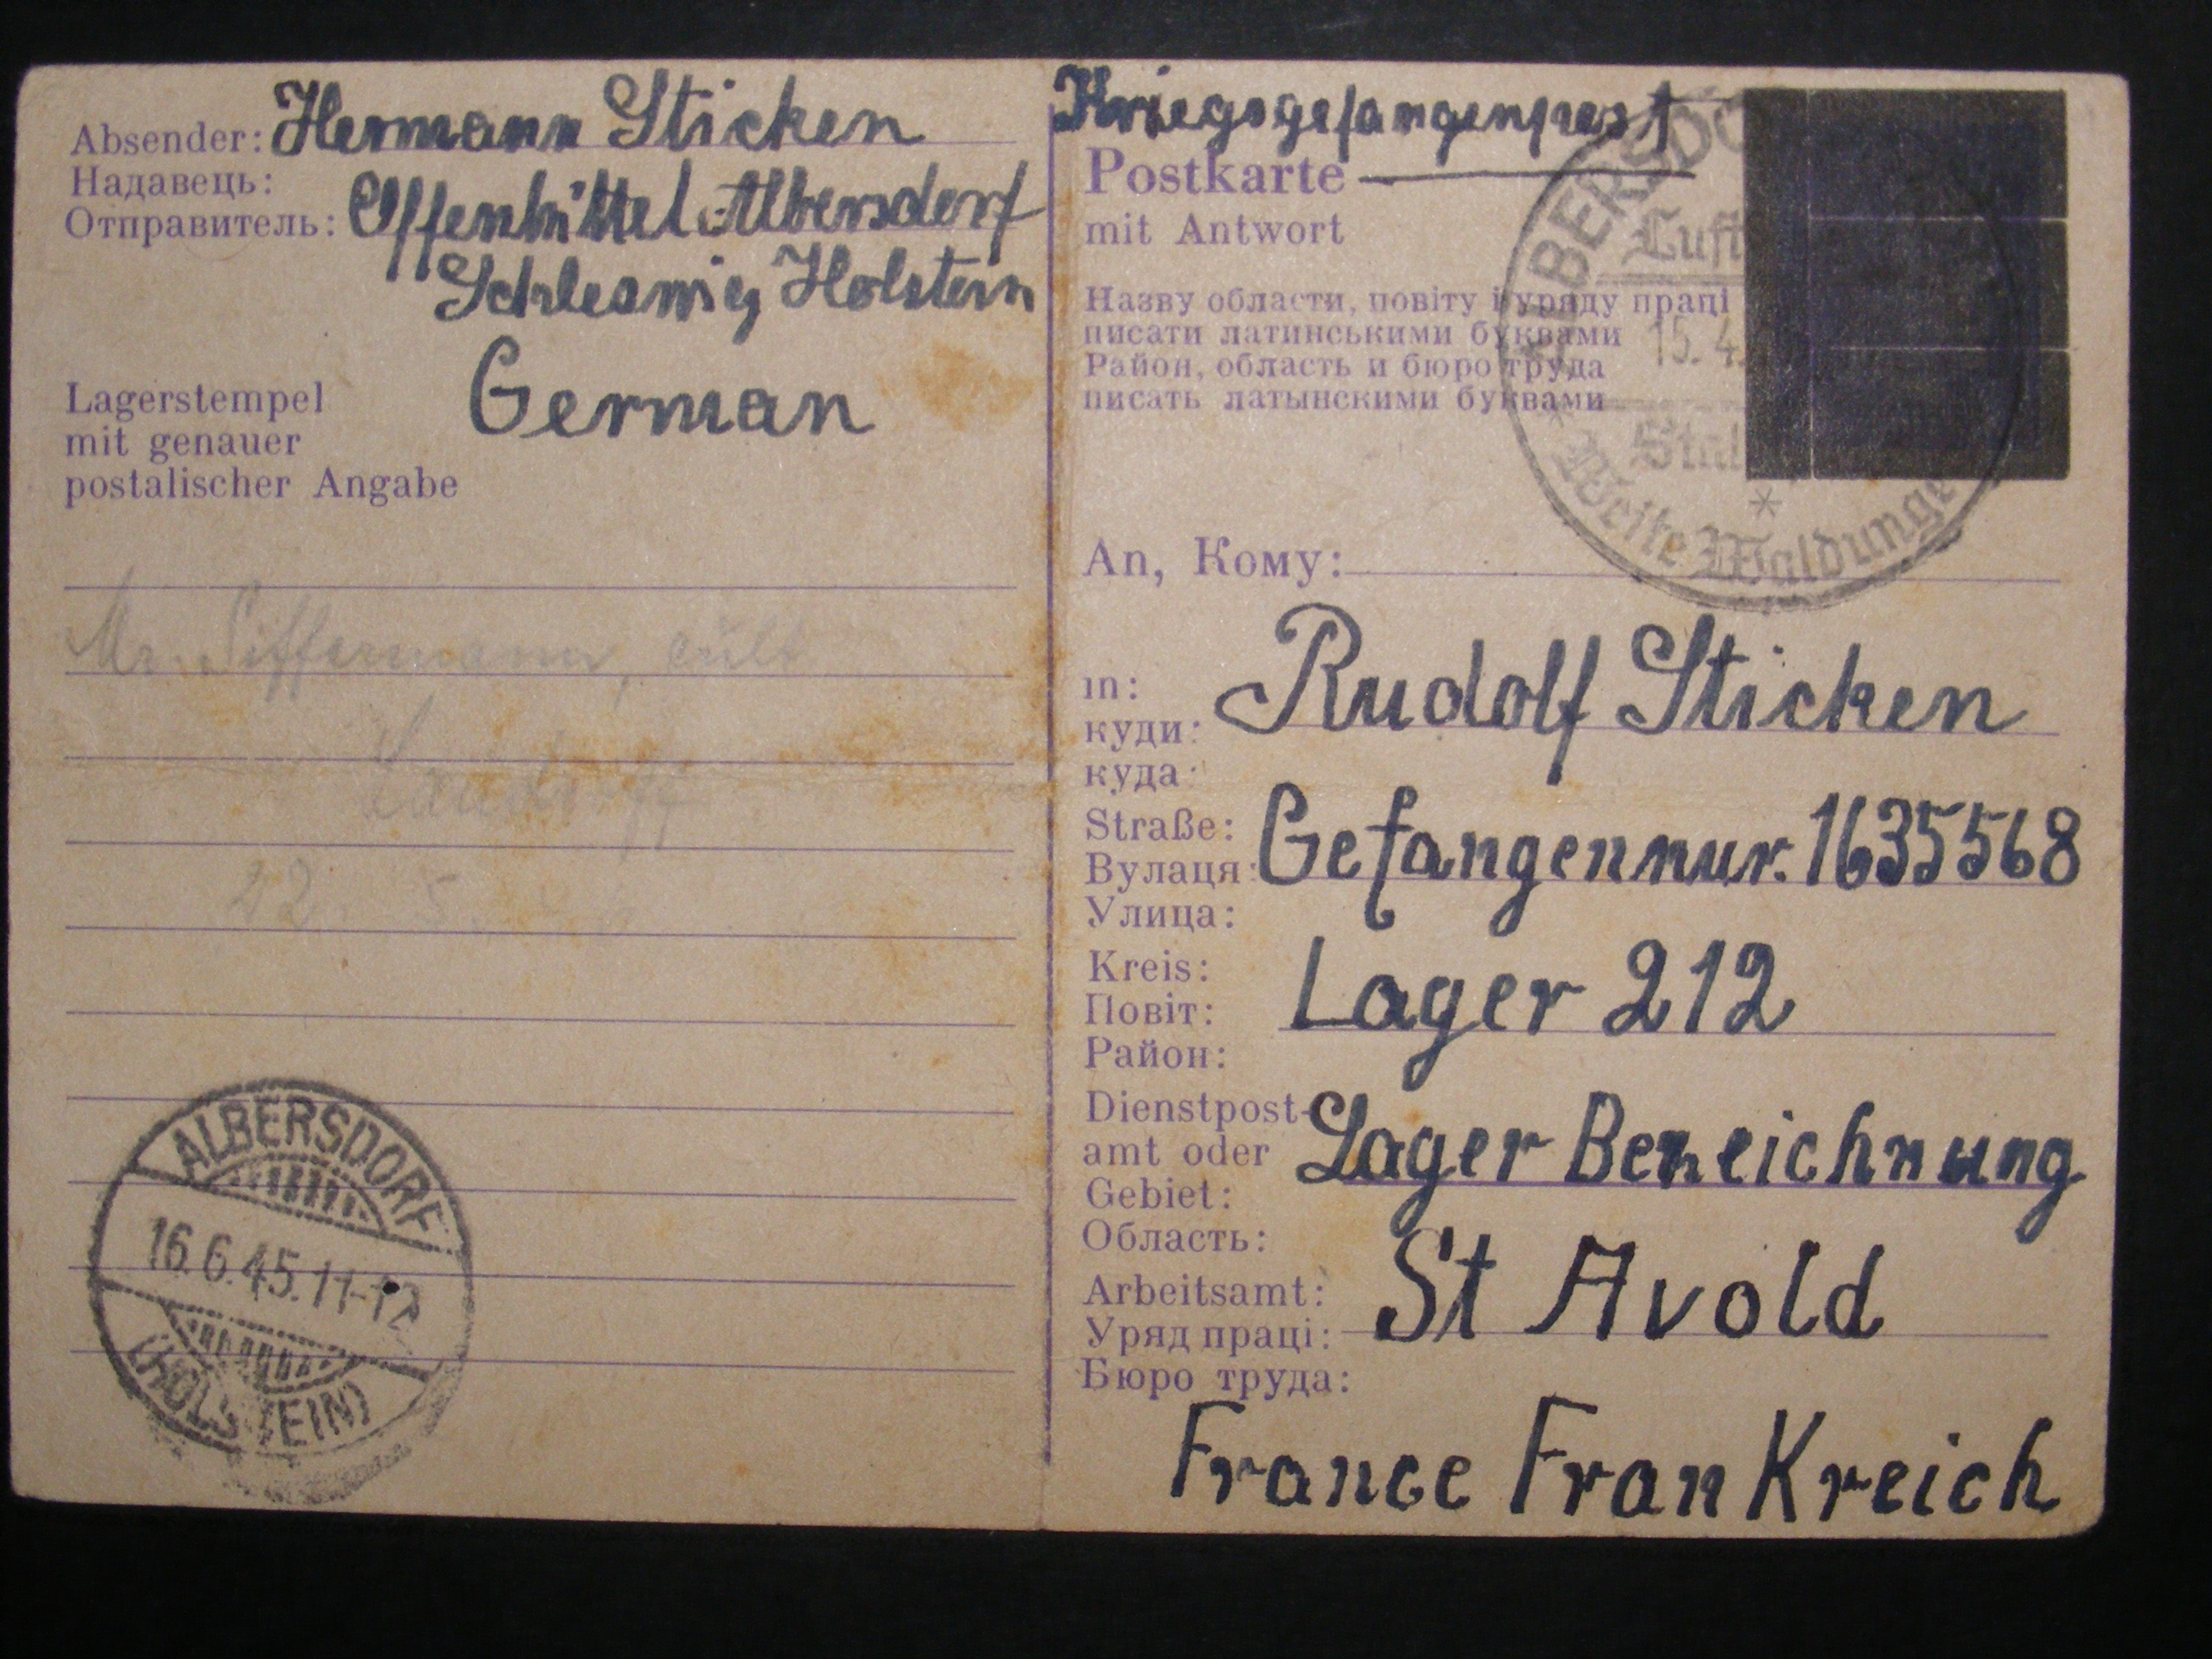 Absender: Hermann Sticken
Надавець:
Отправитель: Offenbüttel Albersdorf
Schleswig Holstein
German
Lagerstempel
mit genauer
postalischer Angabe
Mr. Siffermann, cult
22. 5.
ALBERSDORF
16.6.45.11-12
(HOLSTEIN)
Kriegsgefangenpost
Postkarte
mit Antwort
Назву области, повіту і уряду праці
писати латинськими буквами
Район, область и бюро труда
писать латынскими буквами
ALBERSDO
Luft
15.4.
Weite Waldunge
An, Кому:
in: Rudolf Sticken
куди:
куда:
Straße: Gefangennur. 1635568
Вулаця:
Улица:
Kreis: Lager 212
Повіт:
Район:
Dienstpost- Lager Bezeichnung
amt oder
Gebiet:
Область:
Arbeitsamt: St Avold
Уряд праці:
Бюро труда:
France FranKreich